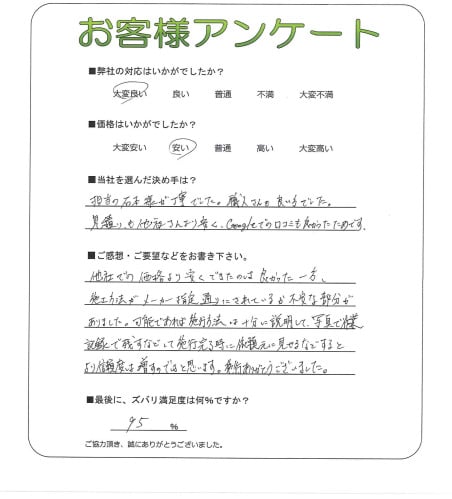 お客様アンケート
■弊社の対応はいかがでしたか?
大変良い 良い 普通 不満 大変不満
■価格はいかがでしたか?
大変安い 安い 普通 高い 大変高い
■当社を選んだ決め手は?
担当の石本様が丁寧でした。職人さんも良い方でした。
見積りも他社さんより安く、Googleでの口コミも良かったためです。
■ご感想・ご要望などをお書き下さい。
他社での価格より安くできたのは良かった一方、
施工方法がメーカー指定通りにされているか不安な部分が
ありました。可能であれば施行方法は十分に説明して、写真で作業
記録で残すなどして施行完了時に依頼元に見せるなどすると
より信頼度は増すのではと思います。ありがとうございました。
■最後に、ズバリ満足度は何%ですか?
95 %
ご協力頂き、誠にありがとうございました。